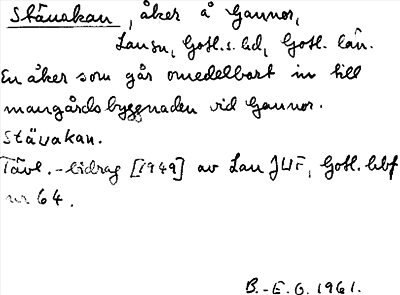 Stävakan, åker å Gannor,
Lausn, Gotl. s. hd, Gotl. län.
En åker som går omedelbart in till
mangårdsbyggnaden vid Gannor.
Stävakan.
Tävl.-bidrag [1949] av Lau JUF, Gotl. hbf
nr 64.
B.-E. G. 1961.